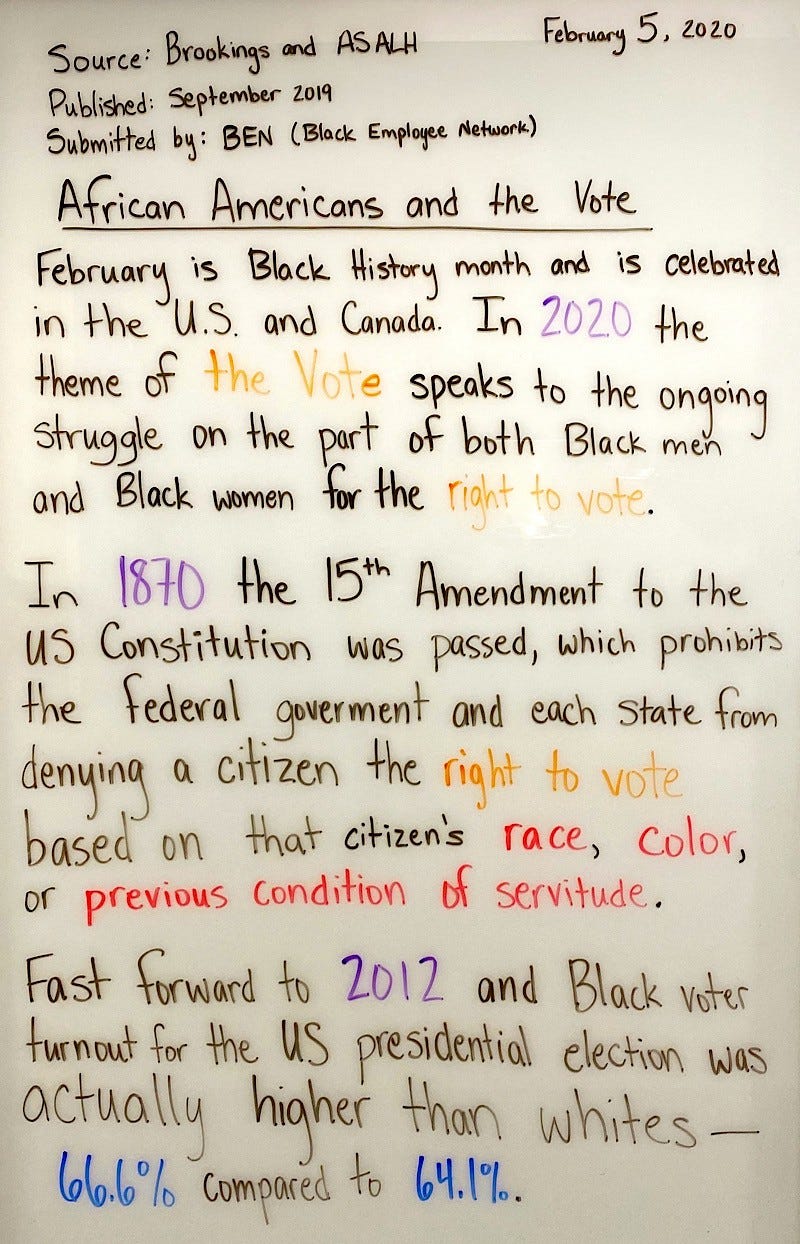 Source: Brookings and ASALH
February 5, 2020
Published: September 2019
Submitted by: BEN (Black Employee Network)
African Americans and the Vote
February is Black History month and is celebrated
in the U.S. and Canada. In 2020 the
theme of the Vote speaks to the ongoing
struggle on the part of both Black men
and Black women for the right to vote.
In 1870 the 15th Amendment to the
US Constitution was passed, which prohibits
the federal goverment and each state from
denying a citizen the right to vote
based on that citizen's race, color,
or previous condition of servitude.
Fast forward to 2012 and Black voter
turnout for the US presidential election was
actually higher than whites—
66.6% compared to 64.1%.